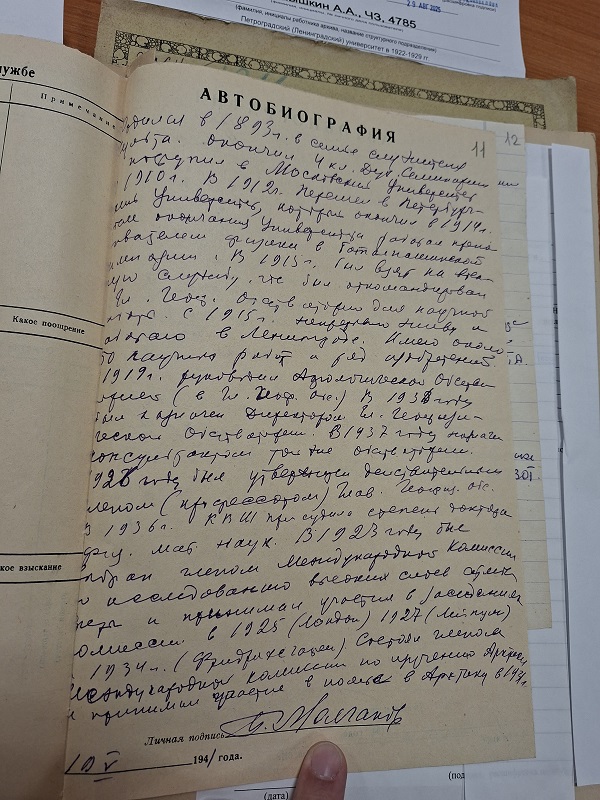 ышкин А.А., ЧЗ. 4785
29 АВГ 2025
(фамилия, инициалы работника архива, название структурного подразделения)
Петроградский (Ленинградский) университет в 1922-1929 гг
ужбе
Примечание
Какое поощрение
кое взыскание
АВТОБИОГРАФИЯ
11
12
одился в 1893 г. в семье служителя
окончил 4 кл. Дух. Семинарии и
поступил в Московский Университет
1910 г. В 1912 г. перешел в Петербург-
Университет, который окончил в 1914 г.
окончания Университета работал препо-
вателем физики в
В 1915 г. был взят на воен-
службу, где был откомандирован
Гл. Геоф. Обсерваторию для научной
С 1915 г. непрерывно живу и
ботаю в Ленинграде. Имею около
научных работ и ряд изобретений
1919 г. руководил Аэрологической Обсерва-
(в Гл. Геоф. Обс.) В 193 году
был назначен Директором Гл. Геофизи-
ческой Обсерватории. В 1937 году назначен
консультантом той же обсерватории.
году был утвержден действительным
членом (профессором) Глав. Геофиз. Обс.
В 1936 г. присудила степень доктора
физ. мат. наук. В 1923 году был
избран членом Международной Комиссии
по исследованию высоких слоев атмос-
феры и принимал участие в заседаниях
комиссии в 1925 (Лондон) 1927 (Лейпциг)
1934 г. (Фридрихсгафен) Состоял членом
Международной Комиссии по изучению Арктики
и принимал участие в полете в Арктику в 1931
Личная подпись П. Молчанов
19 V 1941 года.
(дата)
(под